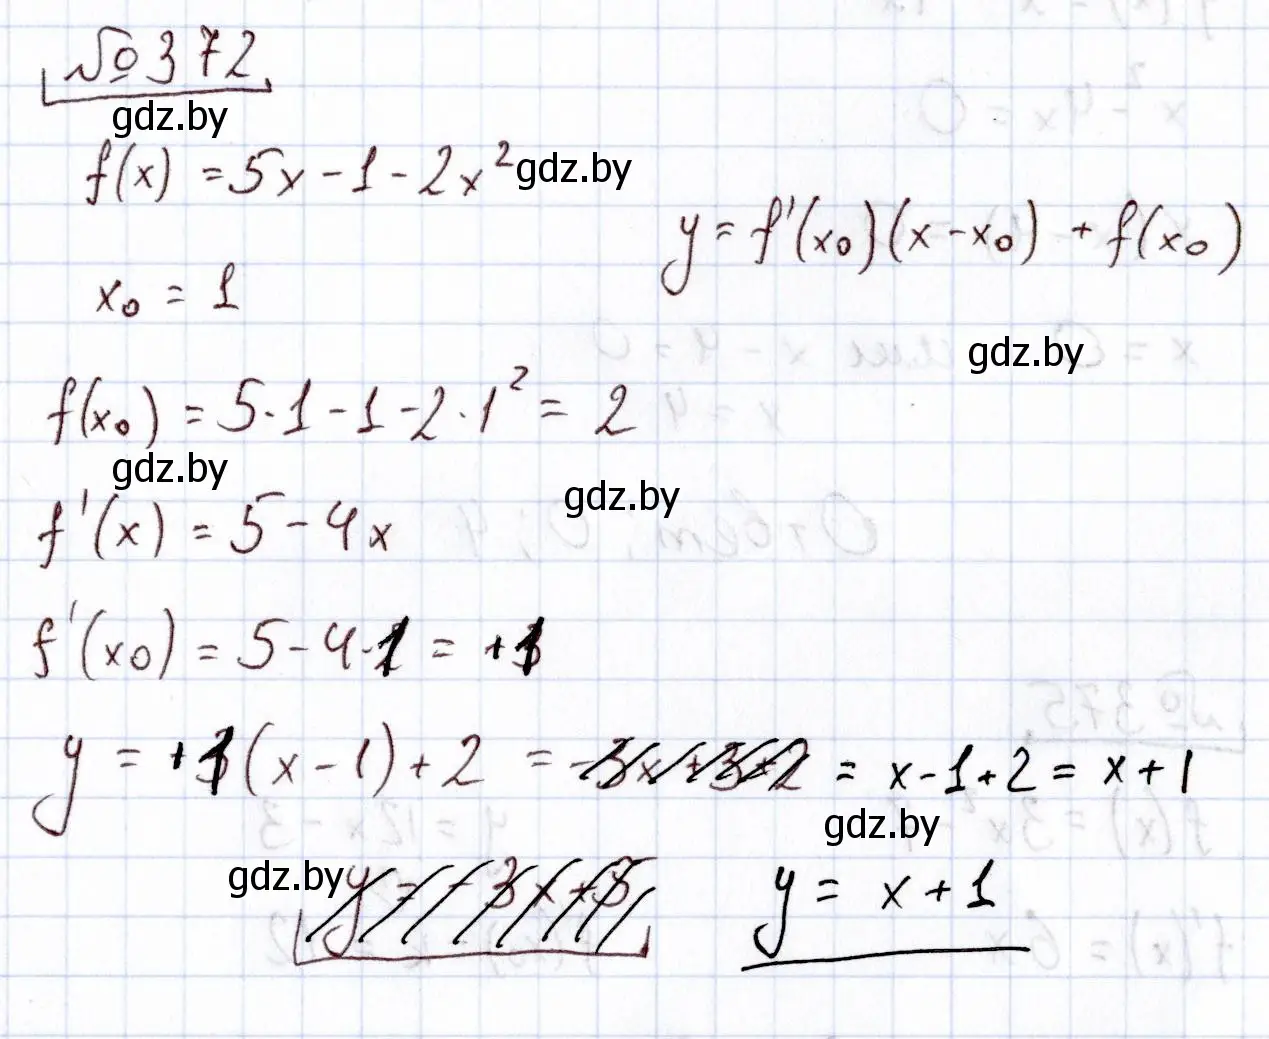 №372
gdz.by
f(x) = 5x - 1 - 2x² gdz.by
y = f'(x₀)(x - x₀) + f(x₀)
x₀ = 1
gdz.by
f(x₀) = 5·1 - 1 - 2·1² = 2
gdz.by
gdz.by
f'(x) = 5 - 4x
f'(x₀) = 5 - 4·1 = +1
y = +1(x - 1) + 2 = -3x+3+2 = x - 1 + 2 = x + 1
gdz.by
gdz.by y = -3x+5
y = x + 1